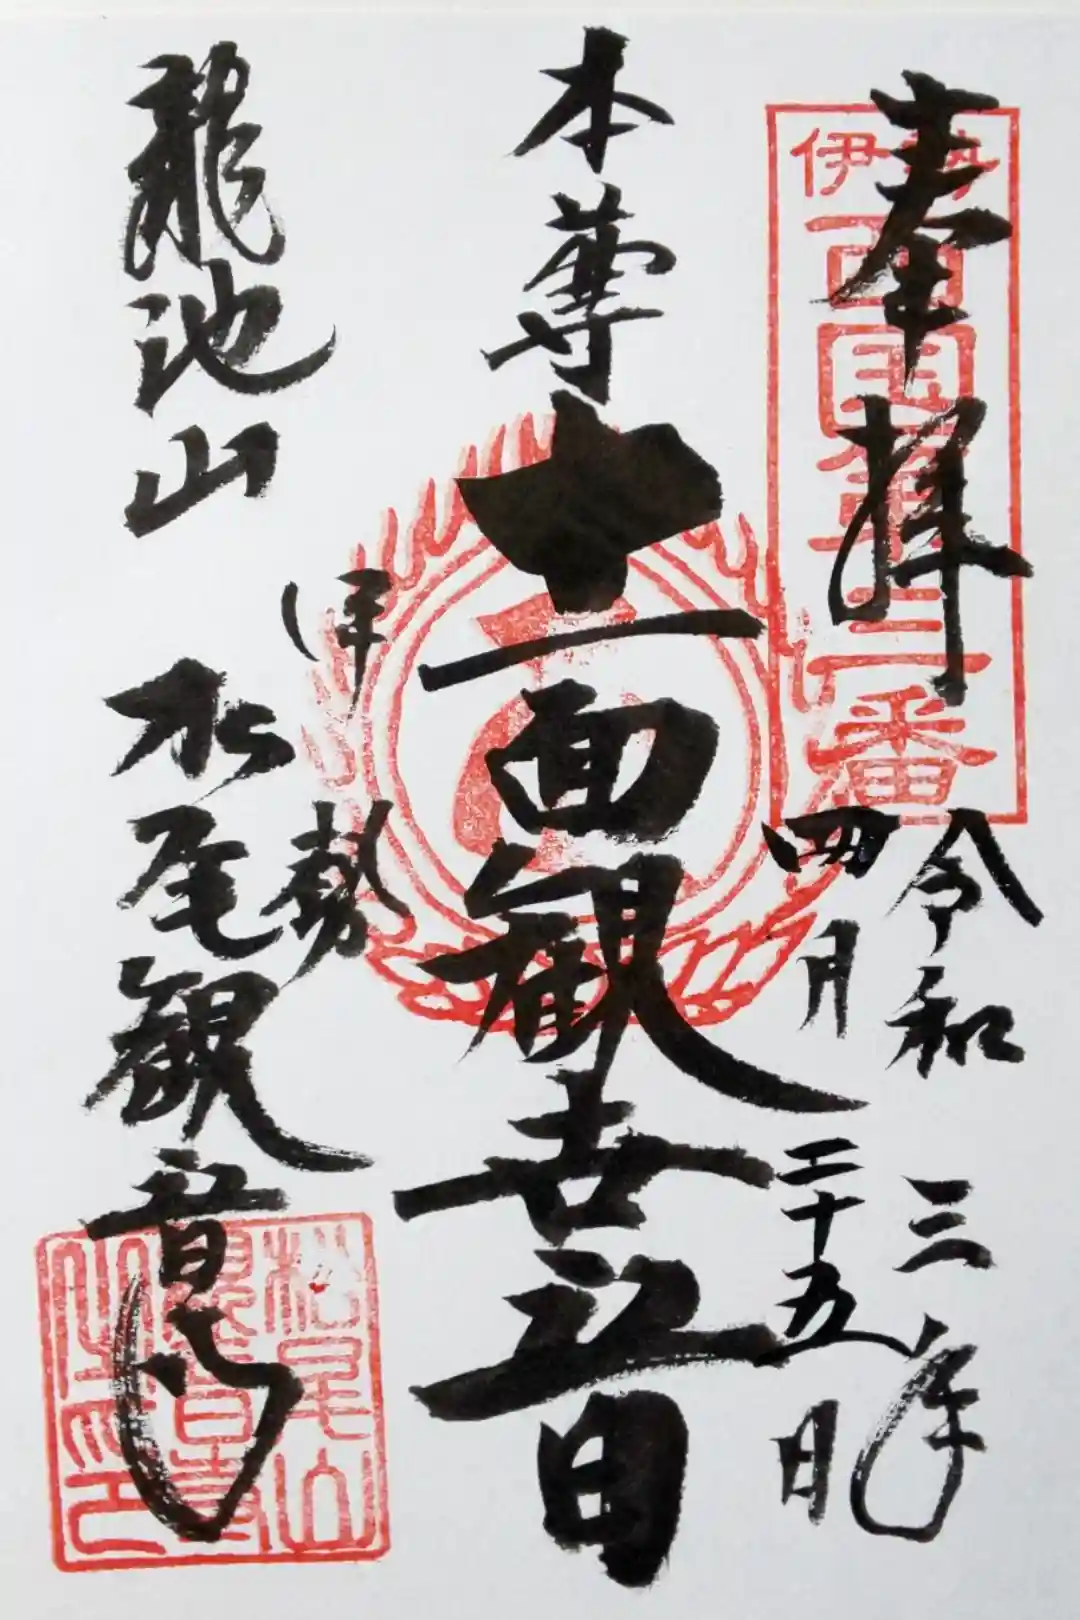 奉拝
伊勢
西国第三番
令和三年
四月二十五日
本尊
十一面観世音
龍池山
伊勢
松尾観音寺
松尾山
観音寺
之印